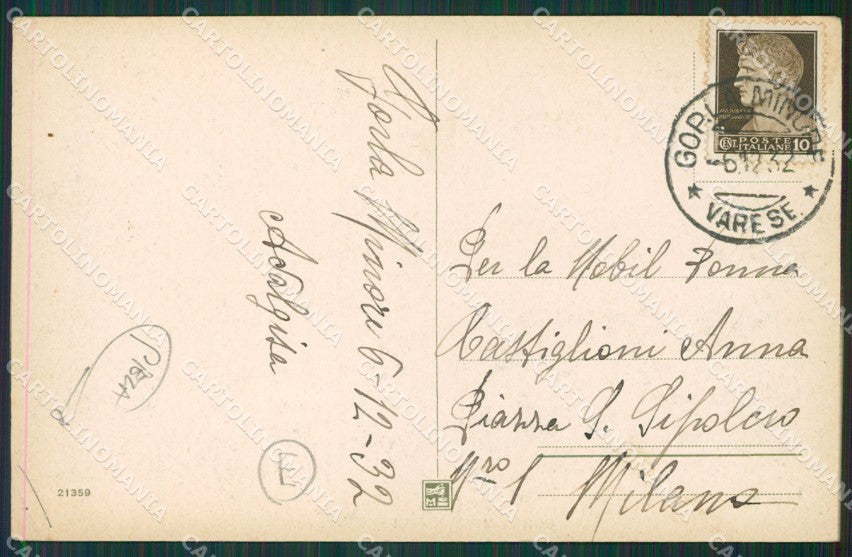 Gorla Minore 6-12-32
Adalgisa
POSTE
ITALIANE
CENT. 10
GORLA MINORE
-6.12.32
VARESE
Per la Nobil Donna
Castiglioni Anna
Piazza S. Sepolcro
Nro 1
Milano
21359
CARTOLINOMANIA